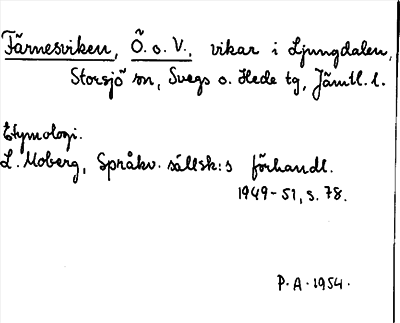 Färnesviken, Ö. o. V., vikar i Ljungdalen,
Storsjö sn, Svegs o. Hede tg, Jämtl. l.
Etymologi.
L. Moberg, Språkv. sällsk:s förhandl.
1949-51, s. 78.
P.A. 1954.